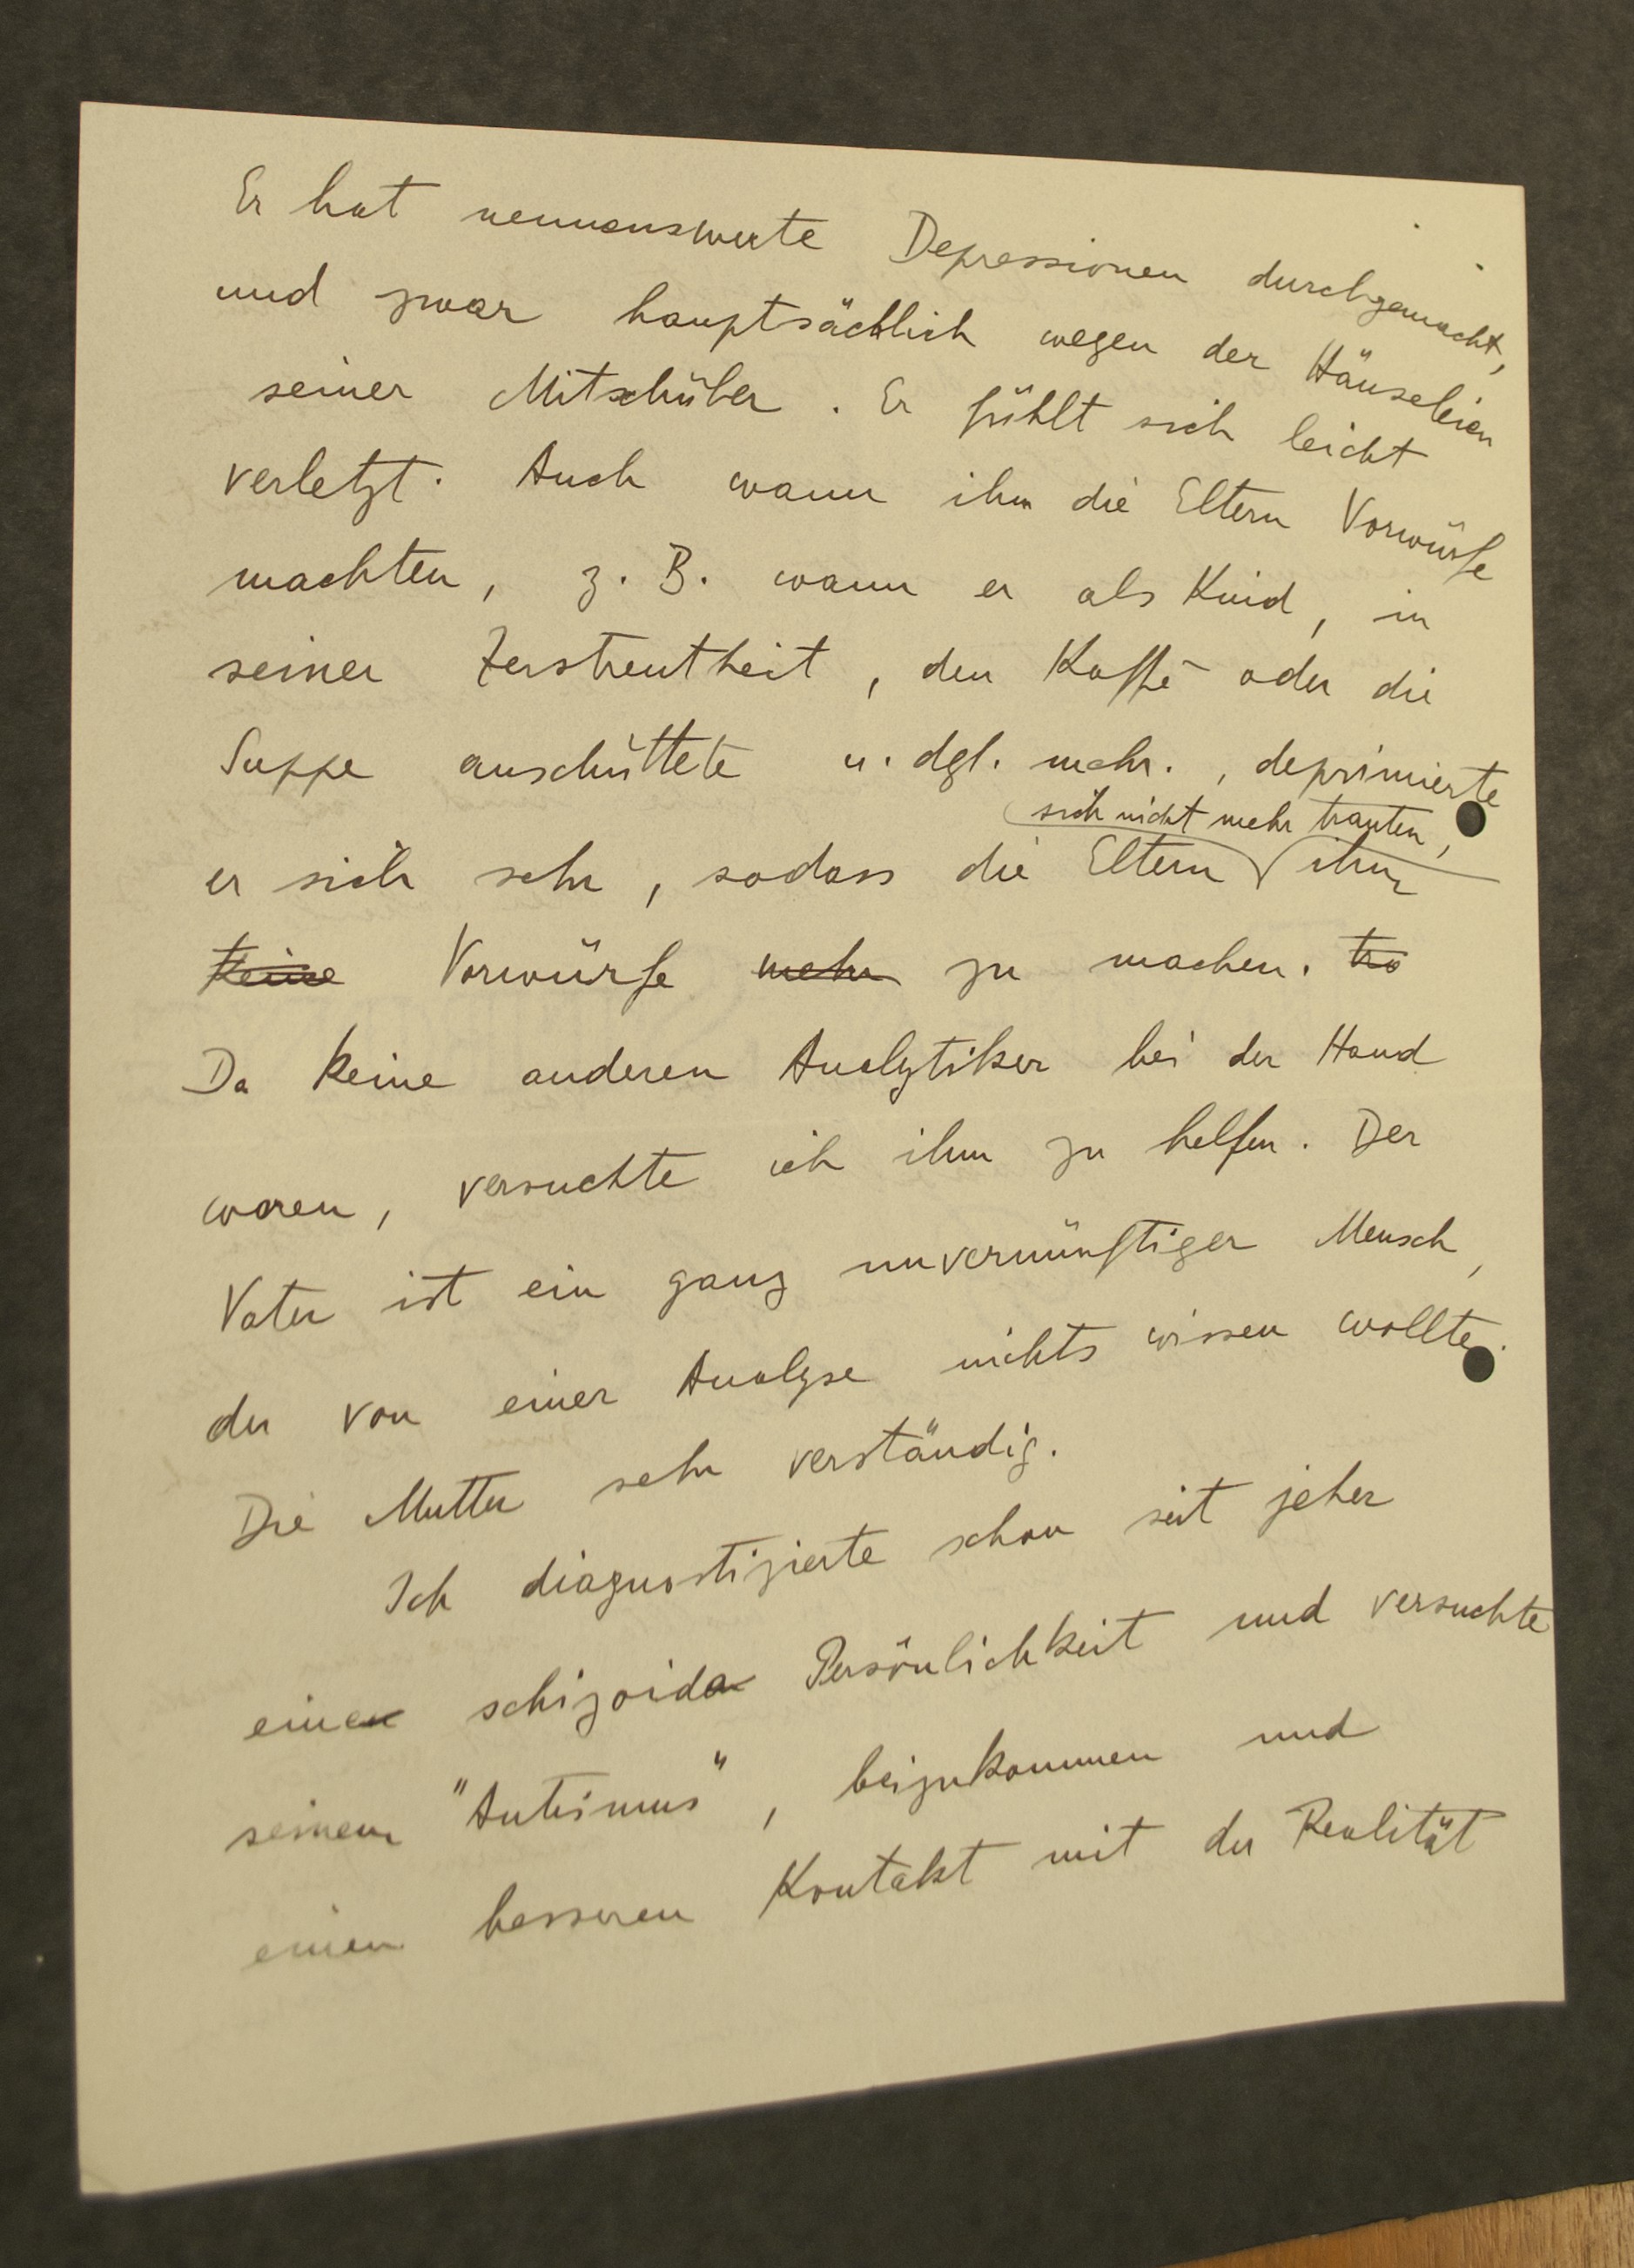 Er hat nennenswerte Depressionen durchgemacht,
und zwar hauptsächlich wegen der Hänseleien
seiner Mitschüler. Er fühlt sich leicht
verletzt. Auch wann ihm die Eltern Vorwürfe
machten, z. B. wann er als Kind, in
seiner Zerstreutheit, den Kaffé oder die
Suppe ausschüttete u. dgl. mehr., deprimierte
sich nicht mehr trauten,
er sich sehr, sodass die Eltern ihm
keine Vorwürfe mehr zu machen. tra
Da keine anderen Analytiker bei der Hand
waren, versuchte ich ihm zu helfen. Der
Vater ist ein ganz unvernünftiger Mensch,
der von einer Analyse nichts wissen wollte.
Die Mutter sehr verständig.
Ich diagnostizierte schon seit jeher
eine schizoide Persönlichkeit und versuchte
seinem "Autismus", beizukommen und
einen besseren Kontakt mit der Realität